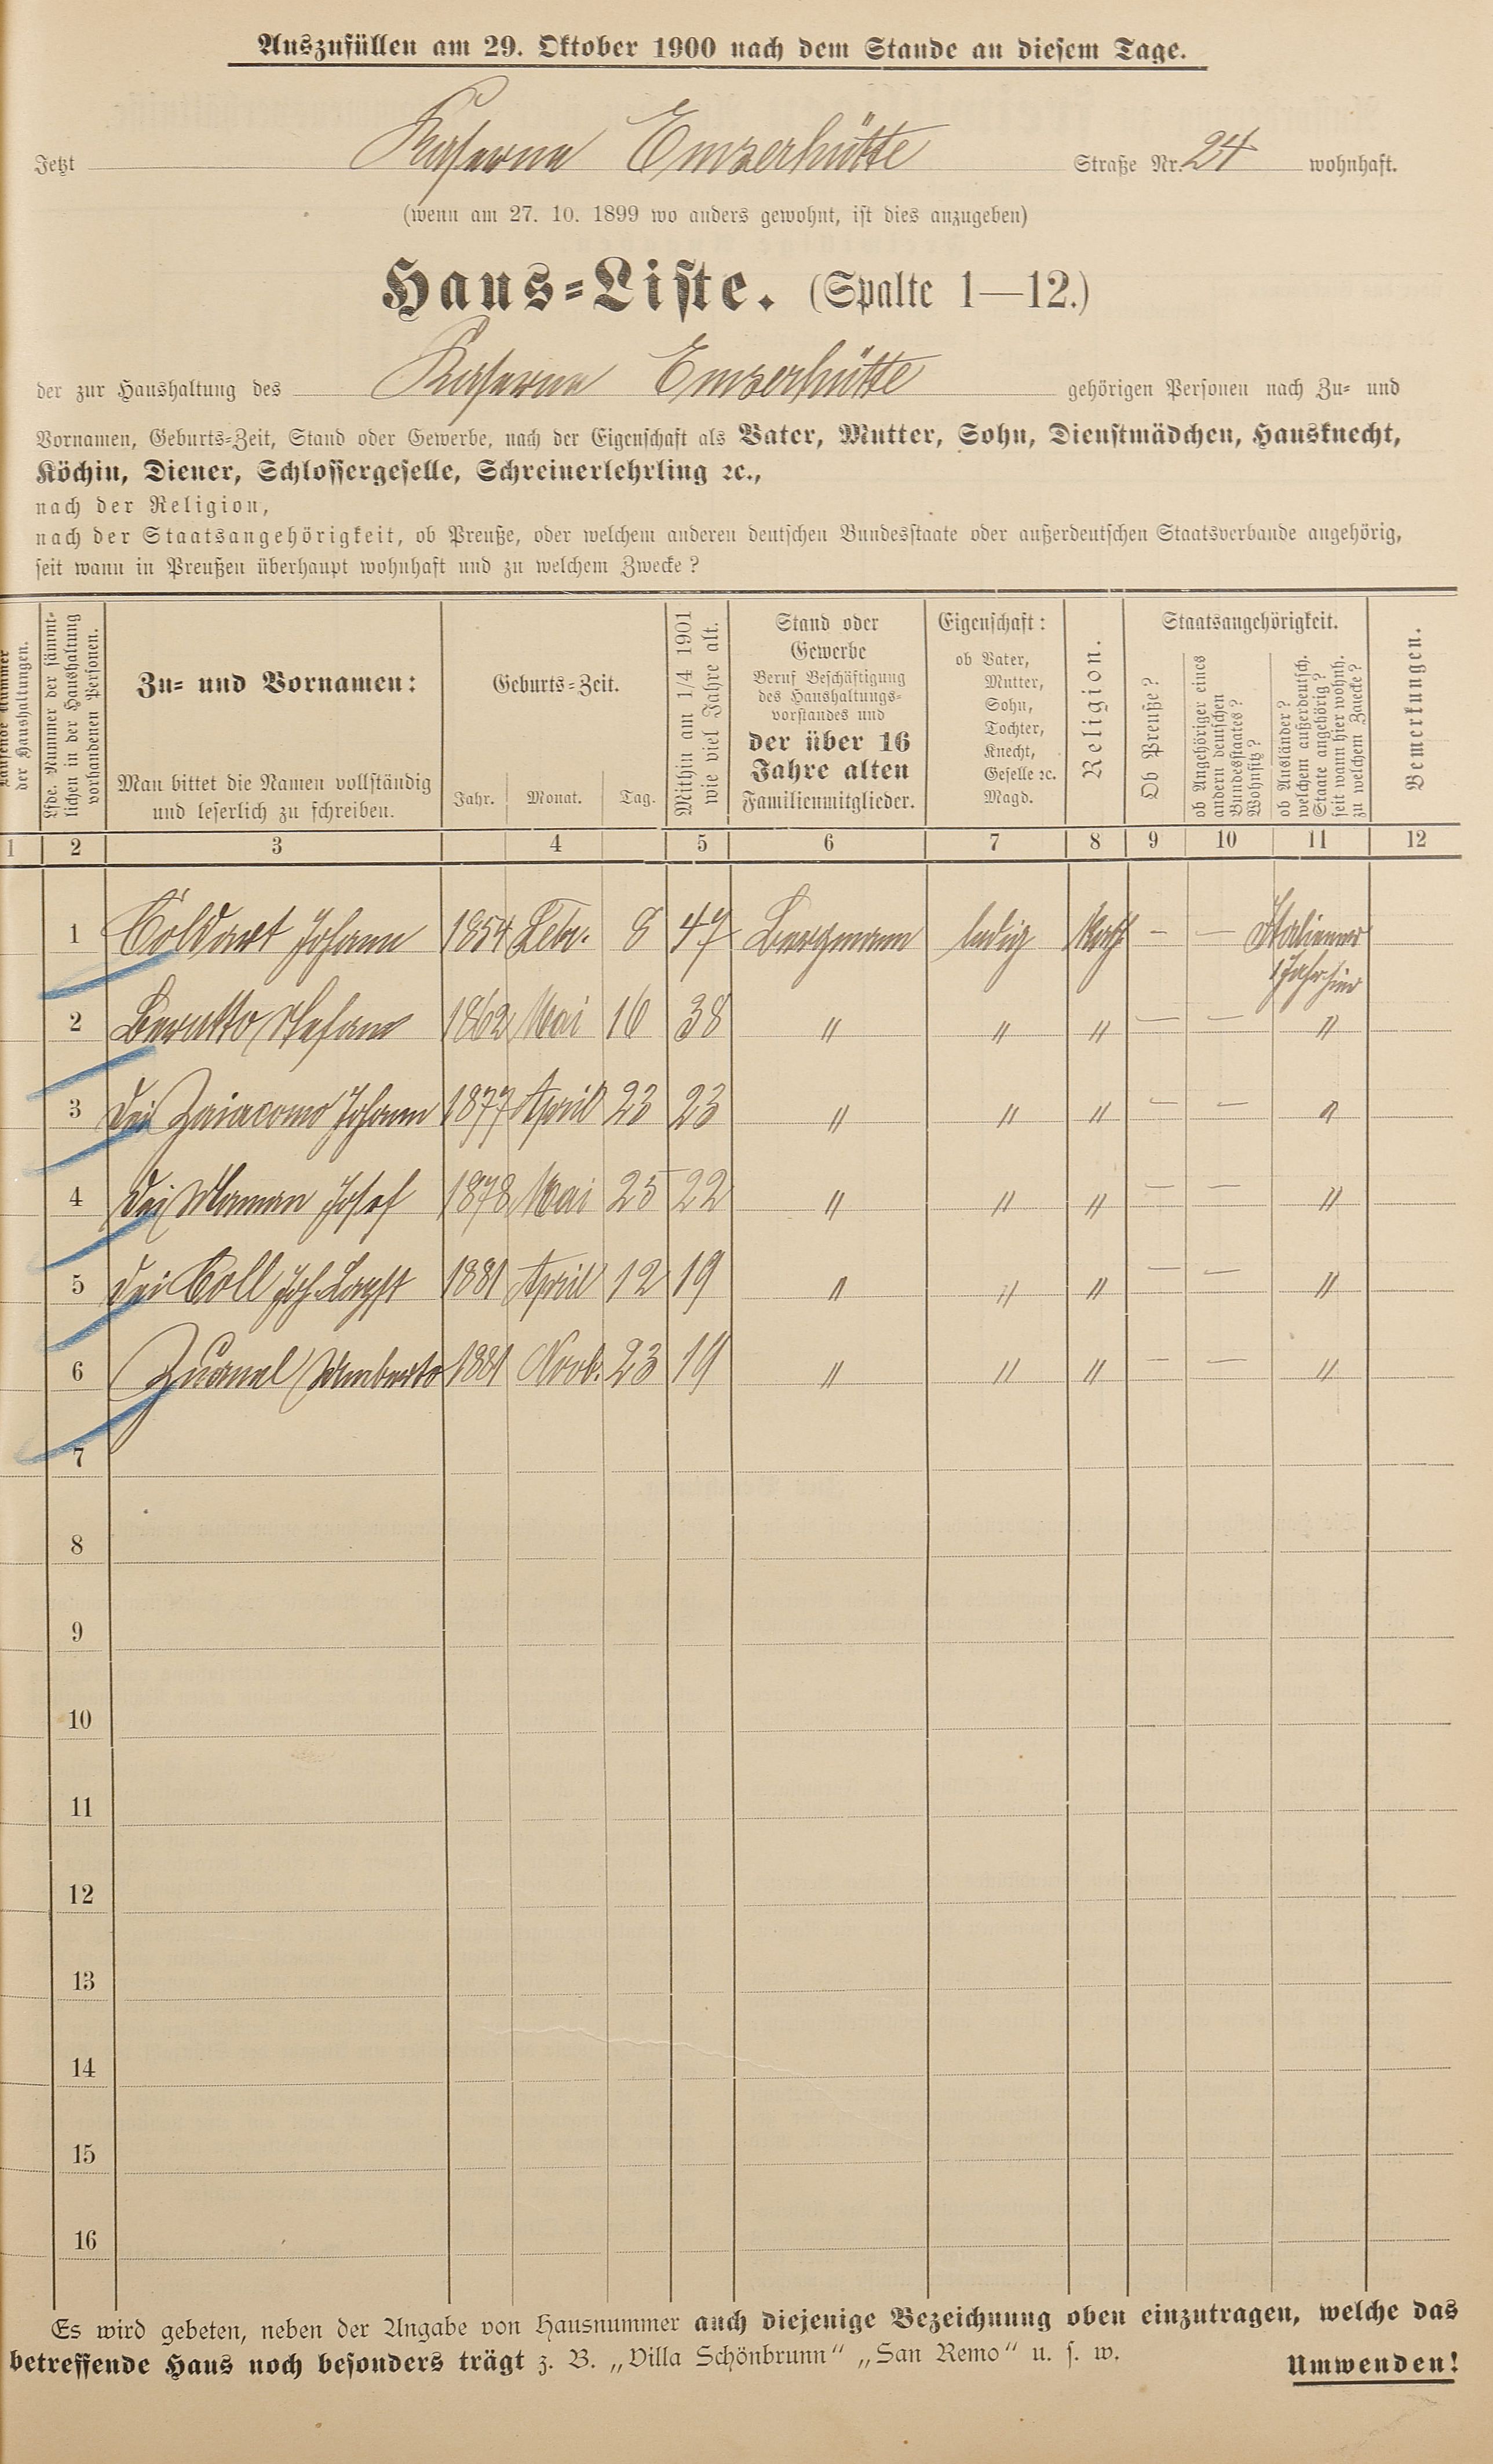 Auszufüllen am 29. Oktober 1900 nach dem Stande an diesem Tage.
Jetzt Kaserne Emserhütte Straße Nr. 24 wohnhaft.
(wenn am 27. 10. 1899 wo anders gewohnt, ist dies anzugeben)
Haus-Liste. (Spalte 1—12.)
der zur Haushaltung des Kaserne Emserhütte gehörigen Personen nach Zu- und
Vornamen, Geburts-Zeit, Stand oder Gewerbe, nach der Eigenschaft als Vater, Mutter, Sohn, Dienstmädchen, Hausknecht,
Köchin, Diener, Schlossergeselle, Schreinerlehrling ꝛc.,
nach der Religion,
nach der Staatsangehörigkeit, ob Preuße, oder welchem anderen deutschen Bundesstaate oder außerdeutschen Staatsverbande angehörig,
seit wann in Preußen überhaupt wohnhaft und zu welchem Zwecke?
Laufende Nummer
der Haushaltungen.
Lfde. Nummer der sämmt-
lichen in der Haushaltung
vorhandenen Personen.
Zu- und Vornamen:
Man bittet die Namen vollständig
und leserlich zu schreiben.
Geburts-Zeit.
Jahr. Monat. Tag.
Mithin am 1/4 1901
wie viel Jahre alt.
Stand oder
Gewerbe
Beruf Beschäftigung
des Haushaltungs-
vorstandes und
der über 16
Jahre alten
Familienmitglieder.
Eigenschaft:
ob Vater,
Mutter,
Sohn,
Tochter,
Knecht,
Geselle ꝛc.
Magd.
Religion.
Staatsangehörigkeit.
Ob Preuße?
ob Angehöriger eines
andern deutschen
Bundesstaates?
Wohnsitz?
ob Ausländer?
welchem außerdeutsch.
Staate angehörig?
seit wann hier wohnh.
zu welchem Zwecke?
Bemerkungen.
1 2 3 4 5 6 7 8 9 10 11 12
1 Johann 1854 Febr. 8 47 Bergmann ledig Kath — — Italiener
1 Jahr hier
2 Berutto Stefano 1862 Mai 16 38 " " " — — "
3 Dei Zaiacomo Johann 1877 April 23 23 " " " — — "
4 Dei Josef 1878 Mai 25 22 " " " — — "
5 Dei Coll Joh. 1881 April 12 19 " " " — — "
6 Zuanel Umberto 1881 Novb. 23 19 " " " — — "
7
8
9
10
11
12
13
14
15
16
Es wird gebeten, neben der Angabe von Hausnummer auch diejenige Bezeichnung oben einzutragen, welche das
betreffende Haus noch besonders trägt z. B. „Villa Schönbrunn“ „San Remo“ u. s. w.
Umwenden!